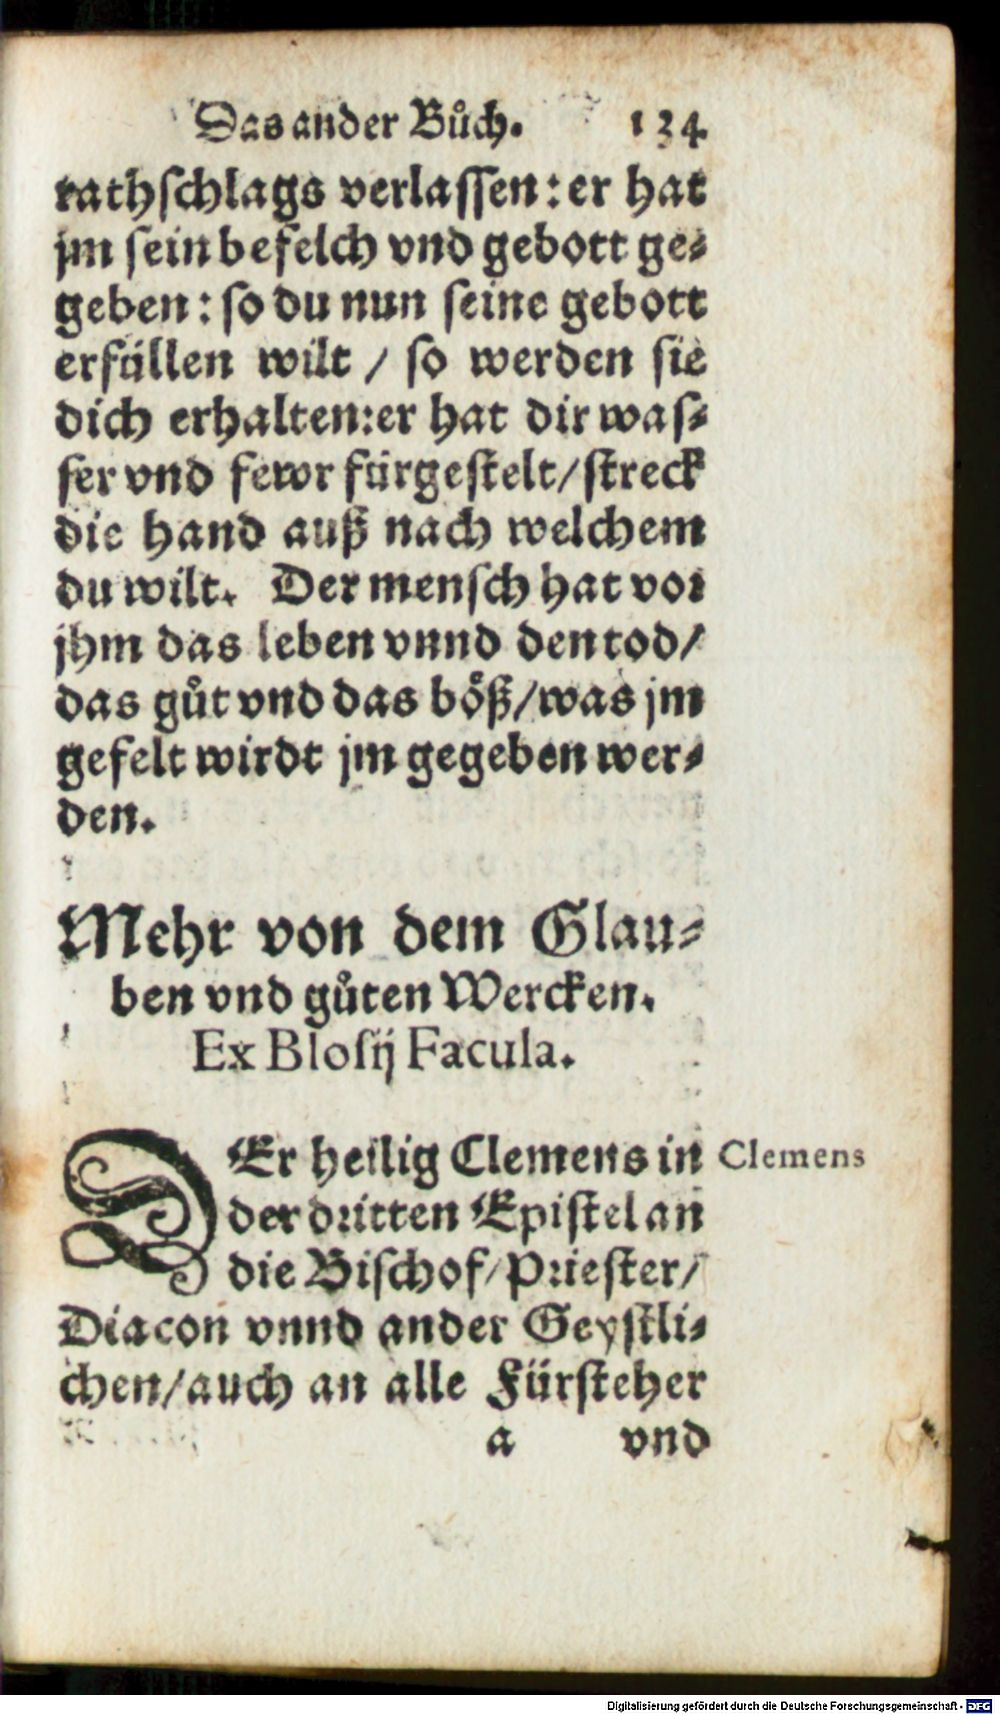 Das ander Bůch. 134
rathschlags verlassen: er hat
jm sein befelch vnd gebott ge-
geben: so du nun seine gebott
erfüllen wilt / so werden sie
dich erhalten: er hat dir was-
ser vnd fewr fürgestelt/ streck
die hand auß nach welchem
du wilt. Der mensch hat vor
jhm das leben vnnd den tod/
das gůt vnd das böß/ was jm
gefelt wirdt jm gegeben wer-
den.
Mehr von dem Glau-
ben vnd gůten Wercken.
Ex Blosij Facula.
DEr heilig Clemens in Clemens
der dritten Epistel an
die Bischof/ Priester/
Diacon vnnd ander Geystli-
chen/ auch an alle Fürsteher
a vnd
Digitalisierung gefördert durch die Deutsche Forschungsgemeinschaft - DFG